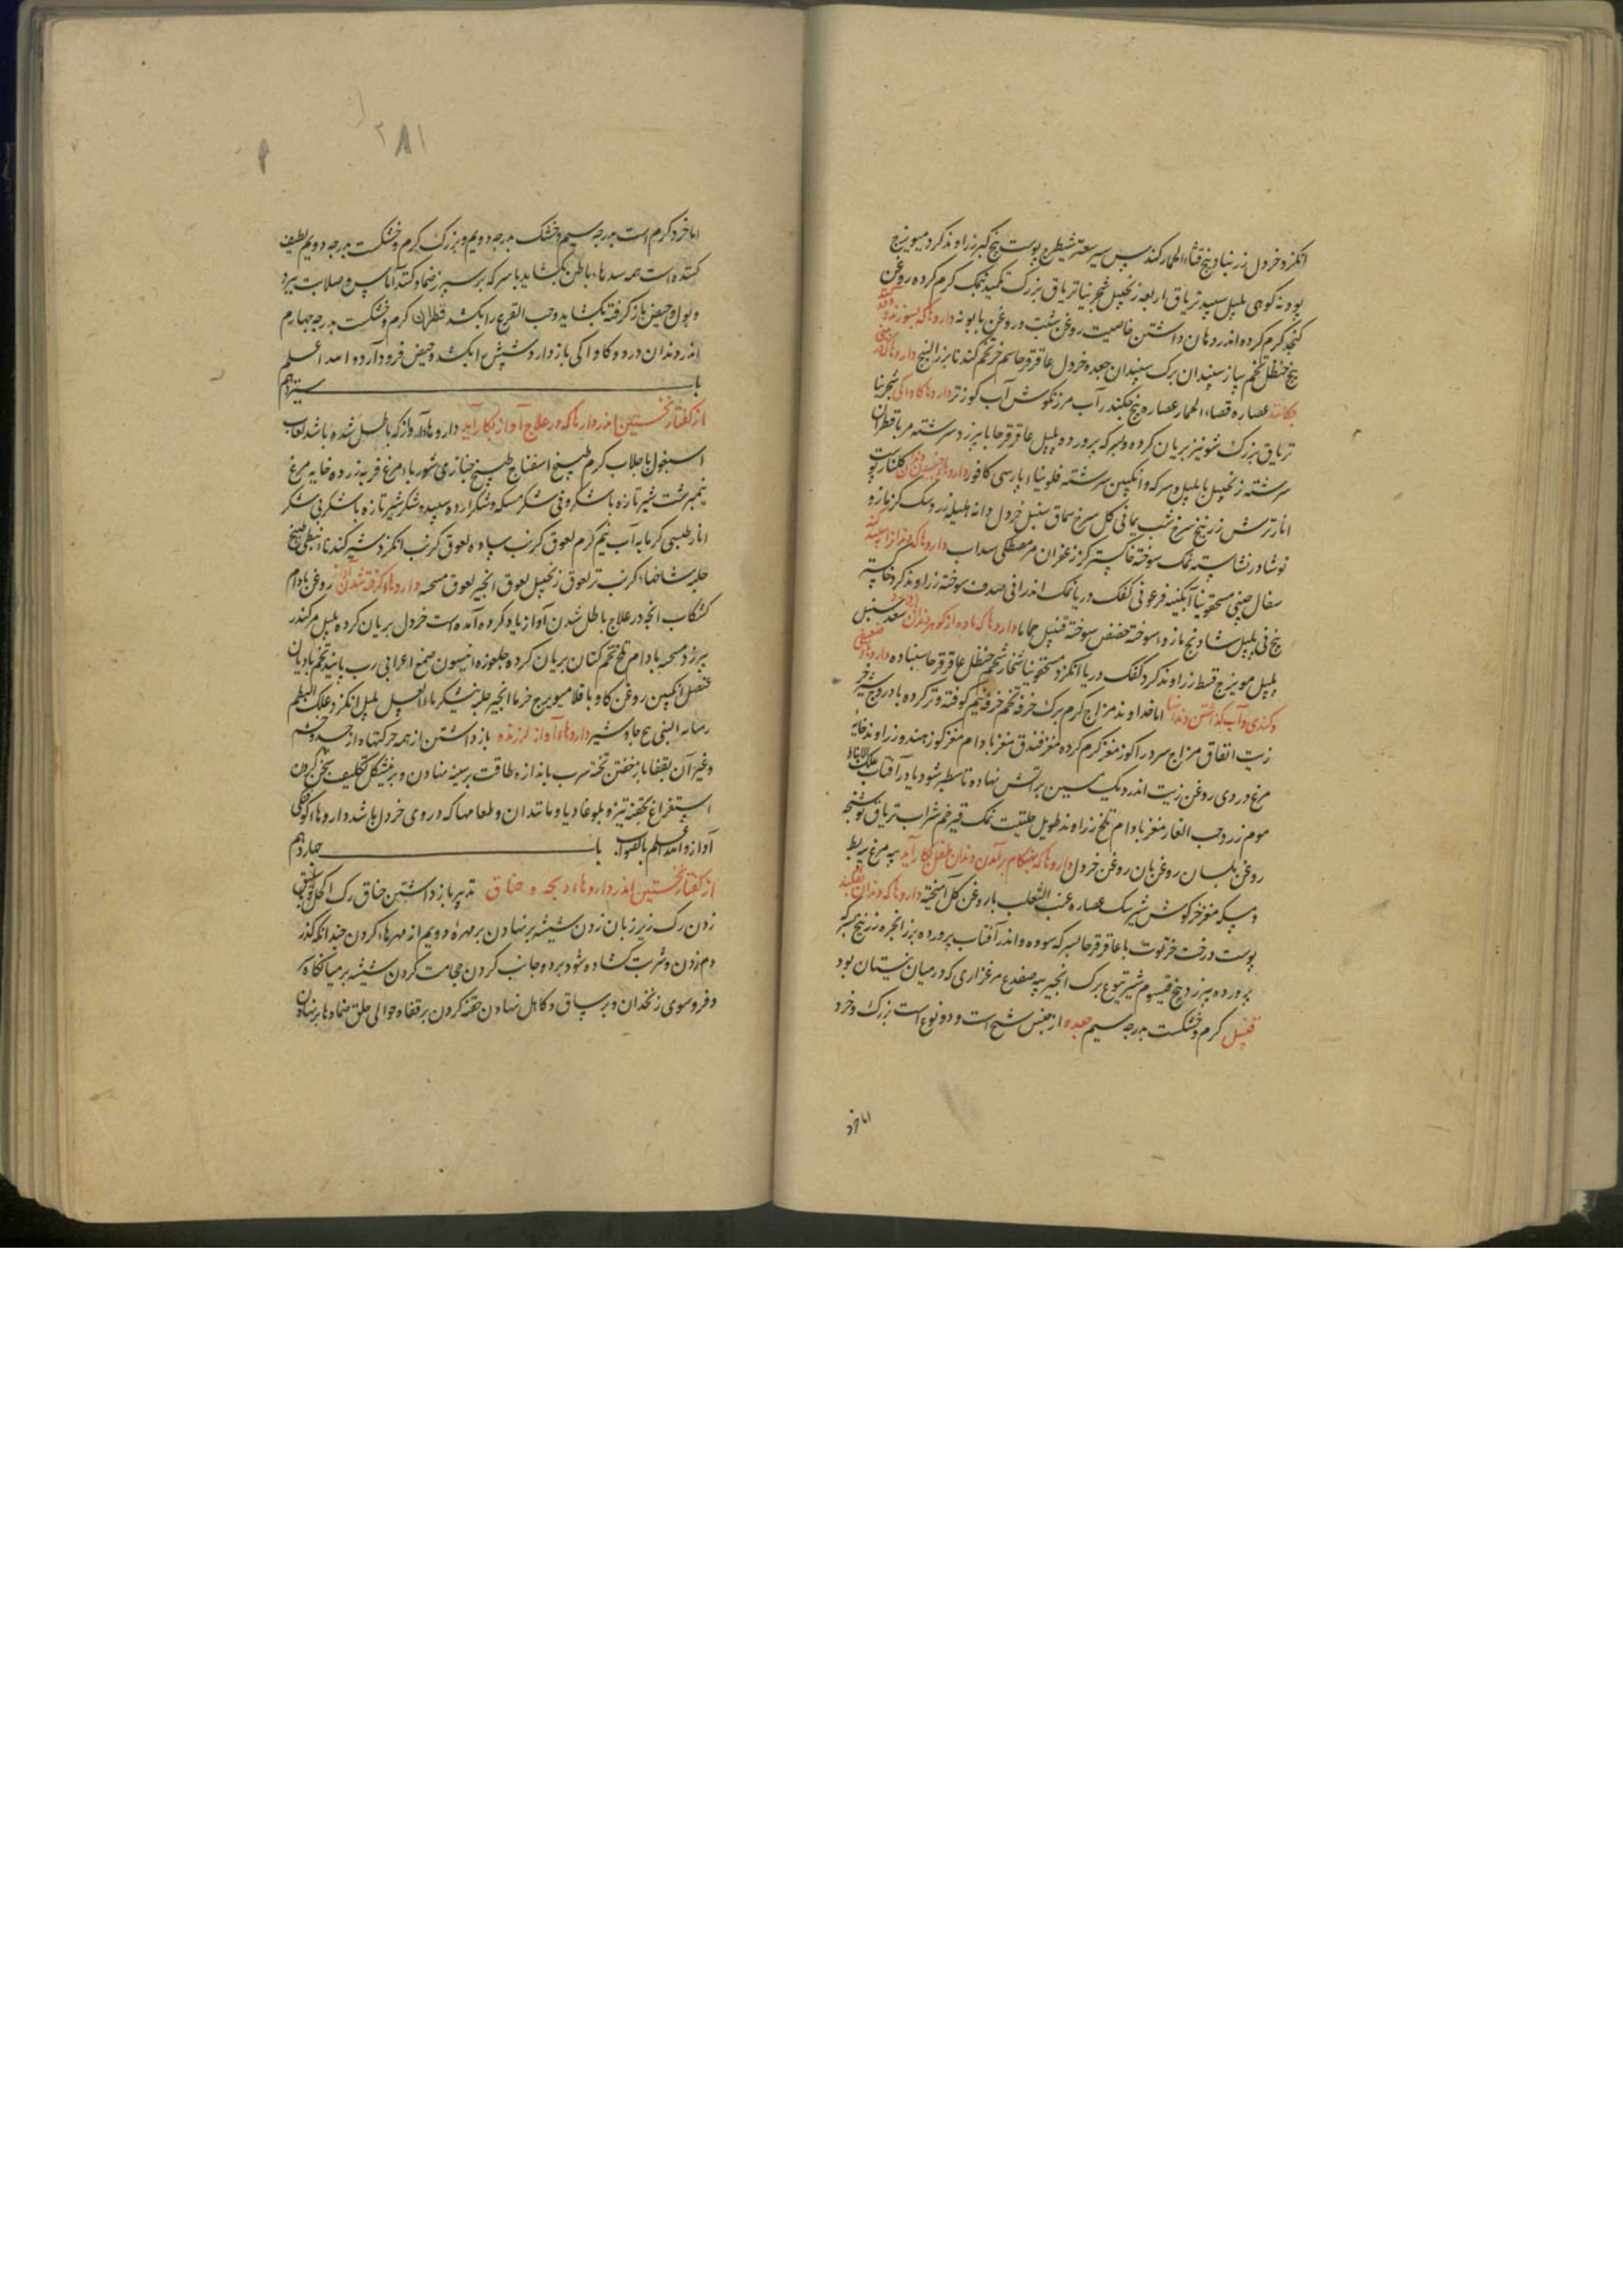 انکزد خردل زرنباد بیخ قثاء الحمار کندس سیر سعتر شیطرج پوست بیخ کبر زراوند کرد میویزج
پودنه کوهی پلپل سپید تریاق اربعه زنجبیل شجرینا تریاق بزرک تکمید نمک کرم کرده روغن
کنجد کرم کرده اندر دهان داشتن خاصیت روغن شبت و روغن بابونه داروها که بسوزند و دود کنند
بیخ حنظل تخم پیاز سپندان برک سپندان جعده خردل عاقرقرحا سم خر تخم کندنا بزر البنج داروها که اندر بینی
چکانند عصاره قثاء الحمار عصاره بیخ چکندر آب مرزنکوش آب کوز تر داروها کاواکی شجرینا
تریاق بزرک شونیز بریان کرده و بسرکه پرورده پلپل عاقرقرحا با بیرزد سرشته مر با قطران
سرشته زنجبیل با پلپل و سرکه و انکبین سرشته فلونیاء پارسی کافور داروها جنبیدن دندان کلنار پوست
انار ترش زرنیخ سرخ شب یمانی کل سرخ سماق سنبل خردل دانه هلیله زرد سک کزمازو
نوشادر نشاسته نمک سوخته خاکستر کزر زعفران مر مصطکی سداب داروها که دندان را سپید کند
سفال چینی مسحقونیا آبکینه فرعونی کفک دریا نمک اندرانی صدف سوخته زراوند کرد خاکستر
بیخ نی پلپل شادنج مازو سوخته حضض سوخته قنبیل حماما داروها که ماده از کوهر دندان بازدارد سعد سنبل
پلپل مویزج قسط زراوند کرد کفک دریا انکزد مسحقونیا شخار شحم حنظل عاقرقرحا سنباده داروها ضعیفی
و کندی و آب کذاشتن دندانها اما خداوند مزاج کرم برک خرفه تخم خرفه نیم کوفته و تر کرده با دروغ شیر خر
زیت انفاق مزاج سرد را کوز مغز کرم کرده مغز فندق مغز بادام مغز کوز هندو زراوند خایه
مرغ دردی روغن زیت اندر دیک مسین بر آتش نهاده تا سطبر شود یا در آفتاب علک الانباط
موم زرد حب الغار مغز بادام تلخ زراوند طویل حلتیت نمک قیر خم شراب تریاق توشنجه
روغن بلسان روغن بان روغن خردل داروها که بهنکام برآمدن دندان طفل بکار آید پیه مرغ پیه بط
و مسکه مغز خرکوش شیر سک عصاره عنب الثعلب با روغن کل آمیخته داروها که دندان بفکند
پوست درخت خرتوت با عاقرقرحا بسرکه سوده و اندر آفتاب پرورده بزر انجره زرنیخ بسرکه
پرورده بیرزد بیخ قیسوم شیر یتوع برک انجیر پیه ضفدع مرغزاری که در میان نیستان بود
قنبیل کرم و خشکست بدرجه سیم جعده از جنس شیح است و دو نوع است بزرک و خرد
اما خرد
۲۸۱
اما خرد کرم است بدرجه سیم و خشک بدرجه دویم و بزرک کرم و خشکست بدرجه دویم لطیف
کننده است همه سدهاء باطن بکشاید با سرکه بر سپرز ضماد کنند آماس و صلابت ببرد
و بول و حیض بازکرفته بکشاید و حب القرع را بکشد قطران کرم و خشکست بدرجه چهارم
اندر دندان درد و کاواکی باز دارد و شپش را بکشد و حیض فرود آرد و الله اعلم
باب سیزدهم
از کفتار نخستین اندر داروها که در علاج آواز بکار آید داروهاء آواز که باطل شده باشد لعاب
اسبغول با جلاب کرم طبیخ اسفناج طبیخ خبازی شوربا مرغ فربه زرده خایه مرغ
نیمبرشت شیر تازه با شکر و فی شکر مسکه و شکر ارده سپید و شکر شیر تازه با شکر بی شکر
انار طبسی کرمابه آب نیم کرم لعوق کرنب ساده لعوق کرنب انکزد شیر کندناء نبطی طبیخ
حلبه شاخهاء کرنب تر لعوق زنجبیل لعوق انجیر لعوق مسحه داروهاء کرفته شدن آواز روغن بادام
کشکاب انجه در علاج باطل شدن آواز یاد کرده آمده است خردل بریان کرده پلپل مر کندر
بیرزد مسحه بادام تلخ تخم کتان بریان کرده جلغوزه انیسون صمغ اعرابی رب پانید تخم بادیان
عنصل انکبین روغن کاو باقلا میویزج خرما انجیر حلبه نیشکر ماء العسل پلپل انکزد علک البطم
جاوشیر داروهاء آواز لرزنده باز داشتن از همه حرکتها از جسد و چشم
و غیر آن بقفا باز خفتن تخته سرب باندازه طاقت بر سینه نهادن و بر مشکل تکلیف سخن کردن
استفراغ بحقنه تیز و بلوغادیا و مانند آن و طعامها که در وی خردل باشد داروهاء کوچکی
آواز و الله اعلم بالصواب باب چهاردهم
از کفتار نخستین اندر داروهاء ذبحه و خناق تدبیر باز داشتن خناق رک اکحل و قیفال
زدن رک زیر زبان زدن شیشه بر نهادن بر مهره دویم از مهرهاء کردن چندانکه کذر
دم زدن و شربت کشاده شود بر دو جانب کردن حجامت کردن شیشه بر میانکاه سر
و فروسوی زنخدان و بر ساق و کاهل نهادن حقنه کردن بر قفا و حوالی حلق ضمادها بر نهادن